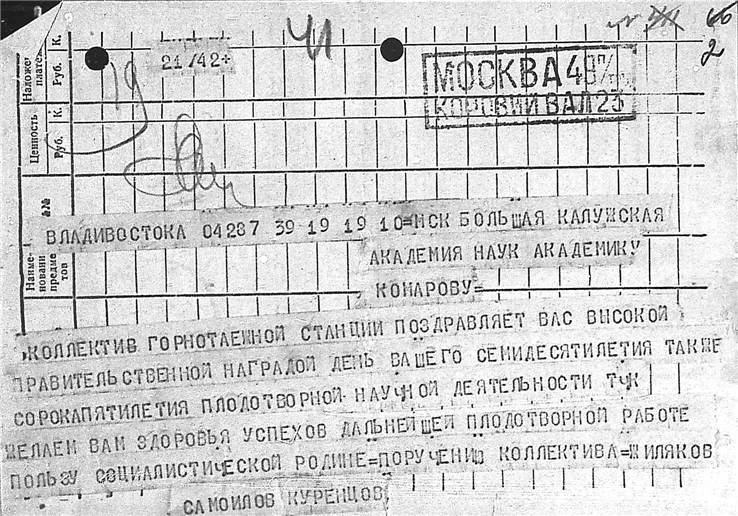 66
2
Наложе
платеж
Руб.
К.
41
19
21/42+
МОСКВА 49
КОРОВИЙ ВАЛ 23
Ценность
Руб.
К.
№№
Наиме-
новани
предме
тов
ВЛАДИВОСТОКА 04287 39 19 19 10=МСК БОЛЬШАЯ КАЛУЖСКАЯ
АКАДЕМИЯ НАУК АКАДЕМИКУ
КОМАРОВУ=
КОЛЛЕКТИВ ГОРНОТАЕЖНОЙ СТАНЦИИ ПОЗДРАВЛЯЕТ ВАС ВЫСОКОЙ
ПРАВИТЕЛЬСТВЕННОЙ НАГРАДОЙ ДЕНЬ ВАШЕГО СЕМИДЕСЯТИЛЕТИЯ ТАКЖЕ
СОРОКАПЯТИЛЕТИЯ ПЛОДОТВОРНОЙ НАУЧНОЙ ДЕЯТЕЛЬНОСТИ ТЧК
ЖЕЛАЕМ ВАМ ЗДОРОВЬЯ УСПЕХОВ ДАЛЬНЕЙШЕЙ ПЛОДОТВОРНОЙ РАБОТЕ
ПОЛЬЗУ СОЦИАЛИСТИЧЕСКОЙ РОДИНЕ=ПОРУЧЕНИЮ КОЛЛЕКТИВА=ШИЛЯКОВ
САМОИЛОВ КУРЕНЦОВ